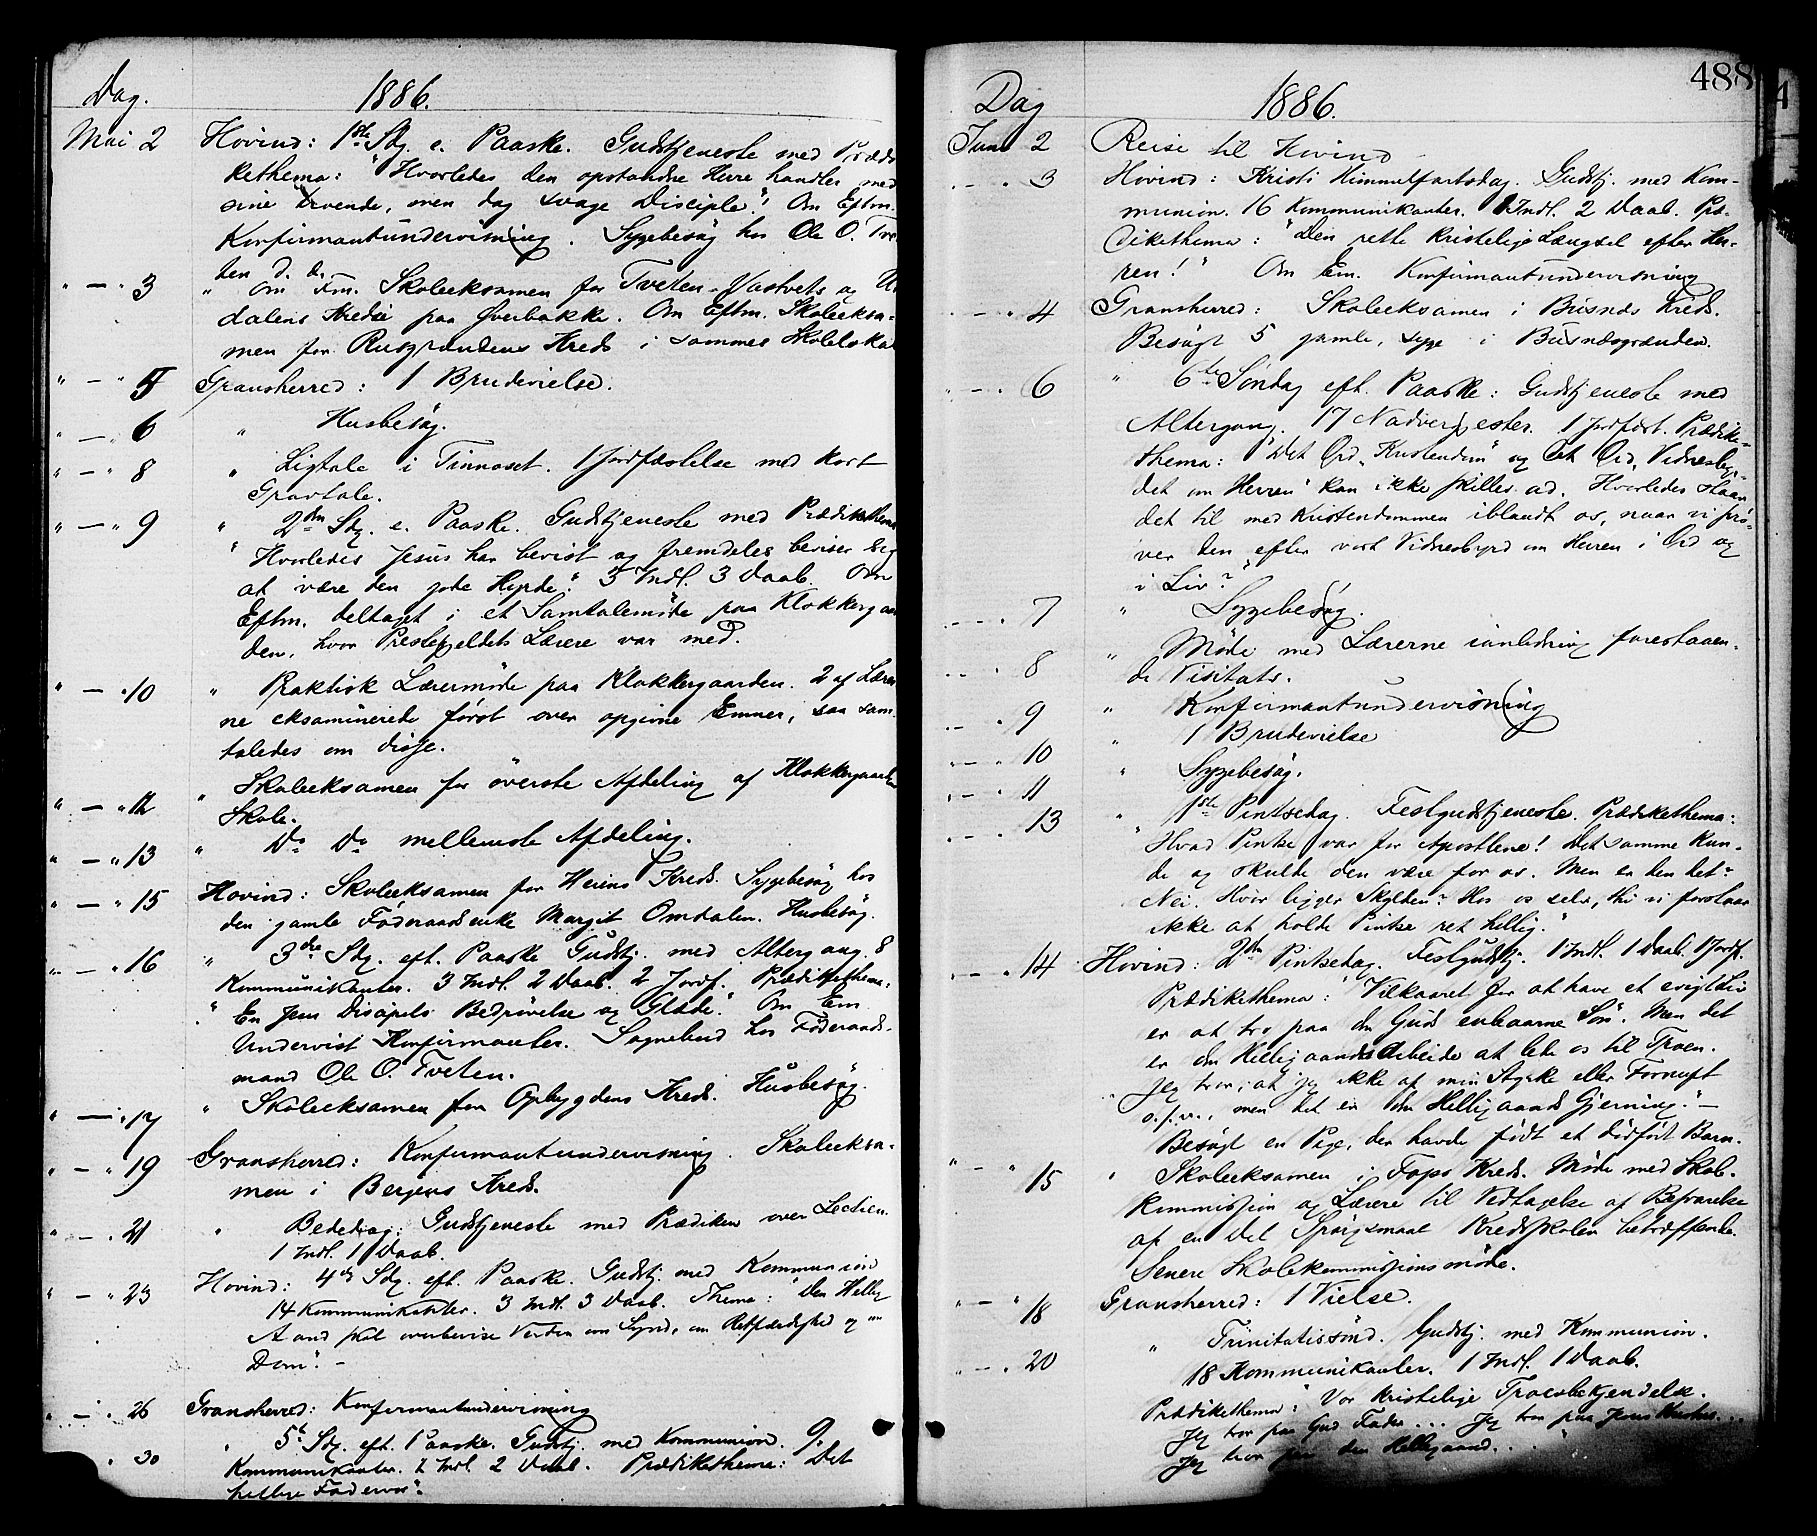 Dag. 1886.
Mai 2 Hovind: 1ste Sdg. e. Paaske. Gudstjeneste med Prædi
kethema: "Hvorledes den opstandne Herre handler med
sine troende, men dog svage Disciple"! Om Eftm.
Konfirmantundervisning. Sygebesøg hos Ole O. Tve
ten d. æ.
" — " 3 " Om Fm. Skoleeksamen for Tveten-Vastveits og
dalens Kredse paa Øverbakke. Om Eftm. Skoleeksa-
men for Rusgrændens Kreds i sammes Skolelokal
" — " 5 Gransherred: 1 Brudevielse.
" — " 6 " Husbesøg.
" — " 8 " Ligtale i Tinnoset. 1 Jordfæstelse med kort
Gravtale.
" — " 9 " 2den Sdg. e. Paaske. Gudstjeneste med Prædikethema
"Hvorledes Jesus har bevist og fremdeles beviser sig
at være den gode Hyrde." 3 Indl. 3 Daab. Om
Eftm. deltaget i et Samtalemøde paa Klokkergaar
den, hvor Prestegjeldets Lærere var med.
" — " 10 " Praktisk Lærermøde paa Klokkergaarden. 2 af Lærer
ne eksaminerede først over opgivne Emner, saa sam-
taledes om disse.
" — " 12 " Skoleeksamen for øverste Afdeling af Klokkergaarden
Skole.
" — " 13 " Do Do mellemste Afdeling.
" — " 15 Hovind: Skoleeksamen for Heiens Kreds. Sygebesøg hos
den gamle Føderaadsenke Margit Omdalen. Husbesøg.
" — " 16 " 3die Sdg. eft. Paaske Gudstj. med Altergang. 8
Kommunikanter. 3 Indl. 2 Daab. 2 Jordf. Prædikethema:
"En Jesu Disciples Bedrøvelse og Glæde". Om Em.
Undervist Konfirmanter. Sognebud hos Føderaads-
mand Ole O. Tveten.
" — " 17 " Skoleeksamen for Opbygdens Kreds. Husbesøg.
" — " 19 Gransherred: Konfirmantundervisning. Skoleeksa-
men i Bergens Kreds.
" — " 21 " Bededag: Gudstjeneste med Prædiken over Lectien.
1 Indl. 1 Daab.
" — " 23 Hovind: 4de Sdg. eft. Paaske. Gudstj. med Kommunion
14 Kommunikanter. 3 Indl. 3 Daab. Thema: "Den Hellig
Aand skal overbevise Verden om Synd, om Retfærdighed og om
Dom". —
" — " 26 Gransherred: Konfirmantundervisning
" 30 " 5te Sdg. eft. Paaske. Gudstj. med Kommunion. 9.
Kommunikanter. 2 Indl. 2 Daab. Prædikethema: "Det
hellige Fadervor".
488
Dag 1886.
Juni 2 Reise til Hovind
" — " 3 Hovind: Kristi Himmelfartsdag. Gudstj. med Kom-
munion. 16 Kommunikanter. 1 Indl. 2 Daab. Præ-
dikethema: "Den rette kristelige Længsel efter Her-
ren!" Om Em. Konfirmantundervisning
" — " 4 Gransherred: Skoleeksamen i Busnes Kreds.
Besøgt 5 gamle, syge i Busnesgrænden.
" — " 6 " 6te Søndag eft. Paaske: Gudstjeneste med
Altergang. 17 Nadvergjester. 1 Jordfæst. Prædike-
thema: "Det Ord "Kristendom" og det Ord "Vidnesbyr-
det om Herren" kan ikke skilles ad. Hvorledes staar
det til med Kristendommen iblandt os, naar vi prø-
ver den efter vort Vidnesbyrd om Herren i Ord og
i Liv?"
" — " 7 " Sygebesøg.
" — " 8 " Møde med Lærerne i anledning forestaaen-
de Visitats.
" — " 9 " Konfirmantundervisning
" — " 10 " 1 Brudevielse
" — " 11 " Sygebesøg.
" — " 13 " 1ste Pintsedag. Festgudstjeneste. Prædikethema:
"Hvad Pintse var for Apostlene! Det samme kun-
de og skulde den være for os. Men er den det?
Nei. Hvor ligger Skylden? Hos os selv, thi vi forstaar
ikke at holde Pintse ret hellig."
" — " 14 Hovind: 2den Pintsedag. Festgudstj. 1 Indl. 1 Daab. 1 Jordf.
Prædikethema: "Vilkaaret for at have et evigt Liv
er at tro paa den Guds enbaarne Søn". Men det
er den Helligaands Arbeide at lede os til Troen.
"Jeg tror, at jeg ikke af min Styrke eller Fornuft
o.s.v., men det er den Helligaands Gjerning." —
Besøgt en Pige, der havde født et dødfødt Barn.
" — " 15 " Skoleeksamen i Fops Kreds. Møde med Skol-
kommission og Lærere til Vedtagelse af Besvarelse
af en Del Spørgsmaal Kredsskolen betræffende.
Senere Skolekommissionsmøde.
" — " 18 Gransherred: 1 Vielse.
" — " 20 " Trinitatissønd. Gudstj. med Kommunion.
18 Kommunikanter. 1 Indl. 1 Daab.
Prædikethema: "Vor kristelige Troesbekjendelse.
Jeg tror paa Gud Fader... Jeg tror paa Jesus Kristus...
Jeg tror paa den Helligaand...."